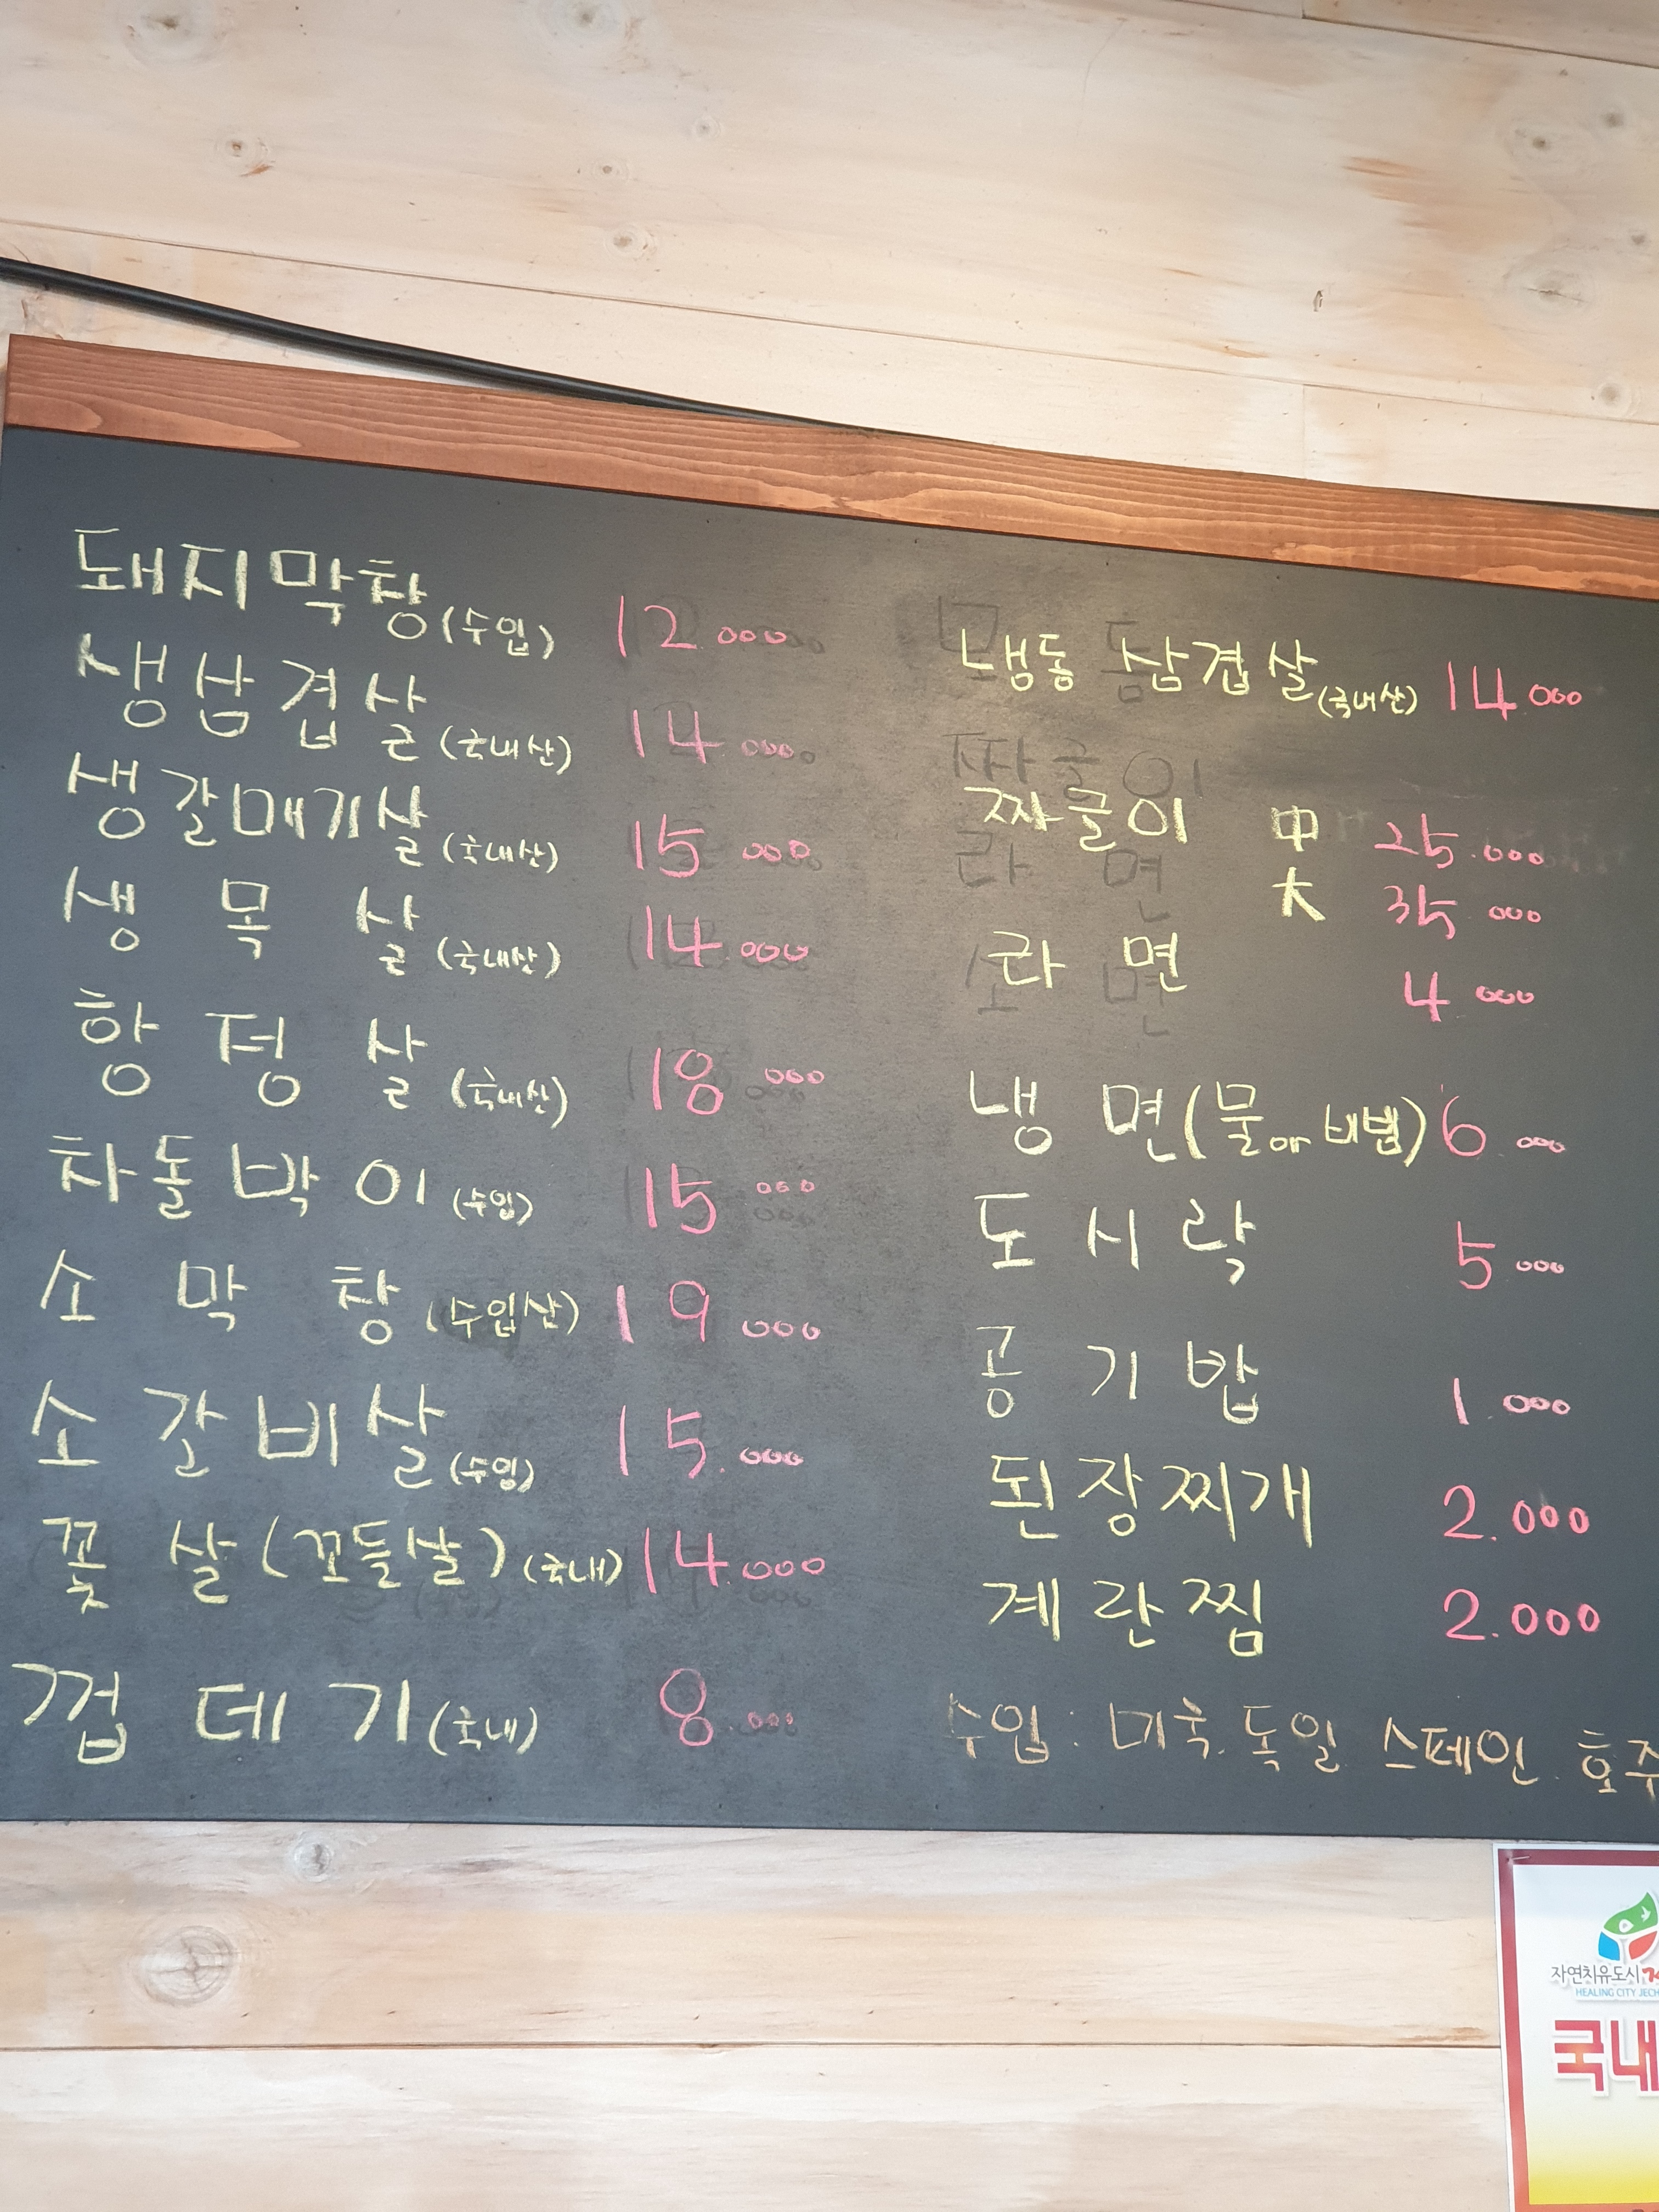 돼지막창(수입) 12.000
생삼겹살(국내산) 14.000
생갈매기살(국내산) 15.000
생목살(국내산) 14.000
항정살(국내산) 18.000
차돌박이(수입) 15.000
소막창(수입산) 19.000
소갈비살(수입) 15.000
꽃살(꼬들살)(국내) 14.000
껍데기(국내) 8.000
냉동 삼겹살(국내산) 14.000
짜글이 中 25.000
大 35.000
라면 4.000
냉면(물or비빔) 6.000
도시락 5.000
공기밥 1.000
된장찌개 2.000
계란찜 2.000
수입: 미국. 독일. 스페인. 호주
자연치유도시
HEALING CITY JECH
국내